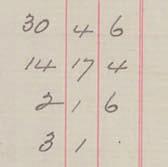 30 4 6
14 17 4
2 1 6
3 1 .